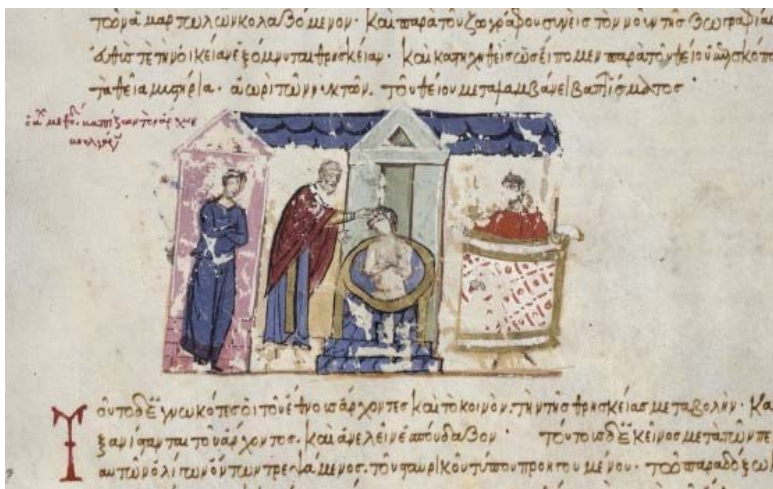 μαρτωλῶν κολαζόμενον · καὶ παρὰ τοῦ ζωγράφου συνεὶς τὸν νοῦν τῆς ζωγραφία
τὴν οἰκείαν ἐξόμνυται θρησκείαν · καὶ κατηχηθεὶς ὡς εἴπομεν παρὰ τοῦ θείου ἐπισκόπ
τὰ θεῖα μυστήρια · ἀωρὶ τῶν νυκτῶν · τοῦ θείου μεταλαμβάνει βαπτίσματος
τὸν ἄρχοντ
Τοῦτο δὲ ἐγνωκότες οἱ τοῦ ἔθνους ἄρχοντες καὶ τὸ κοινὸν · τὴν τῆς θρησκείας μεταβολὴν · κα
ξανίστανται τοῦ ἄρχοντος · καὶ ἀνελεῖν ἐσπούδαζον · τούτους δὲ ἐκεῖνος μετὰ τῶν πε
ὀλίγων ὄντων τρεψάμενος · τοῦ σταυρικοῦ τύπου προηγουμένου · παραδόξω